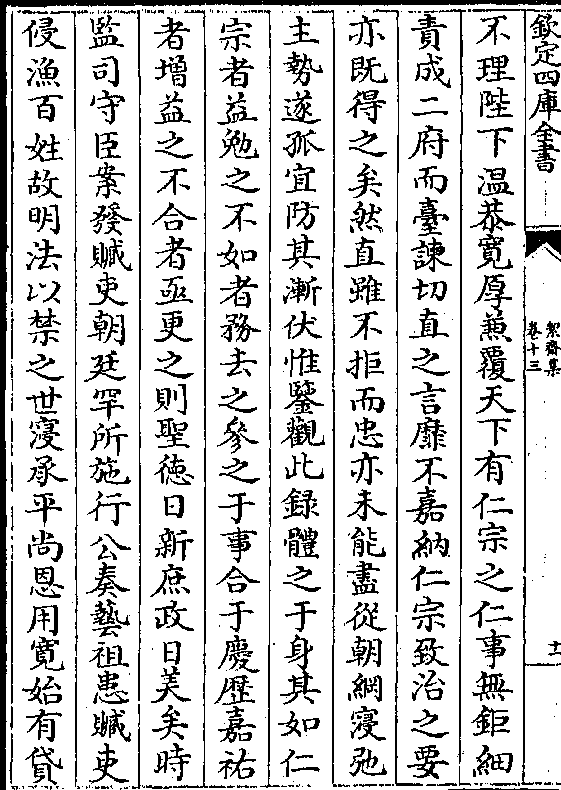 欽定四庫全書
絜齋集
卷十三
十一
不理陛下温恭寛厚兼覆天下有仁宗之仁事無鉅細
責成二府而臺諫切直之言靡不嘉納仁宗致治之要
亦既得之矣然直雖不拒而忠亦未能盡從朝綱寖弛
主勢遂孤宜防其漸伏惟鑒觀此録體之于身其如仁
宗者益勉之不如者務去之參之于事合于慶歷嘉祐
者增益之不合者亟更之則聖徳日新庶政日美矣時
監司守臣案發贓吏朝廷罕所施行公奏藝祖患贓吏
侵漁百姓故明法以禁之世寖承平尚恩用寛始有貸